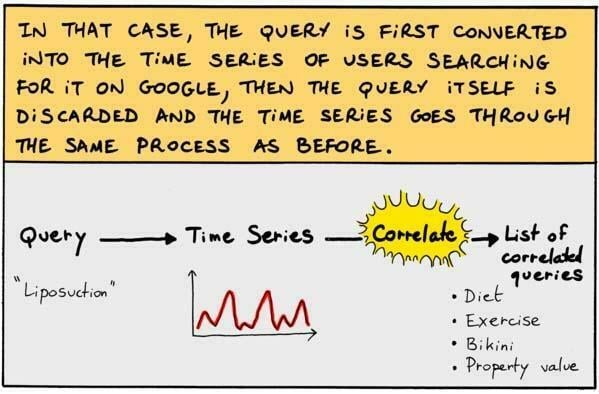 IN THAT CASE, THE QUERY IS FIRST CONVERTED
INTO THE TIME SERIES OF USERS SEARCHING
FOR IT ON GOOGLE, THEN THE QUERY ITSELF IS
DISCARDED AND THE TIME SERIES GOES THROUGH
THE SAME PROCESS AS BEFORE.
Query
Time Series
Correlate
List of
correlated
queries
"Liposuction"
• Diet
• Exercise
• Bikini
• Property value